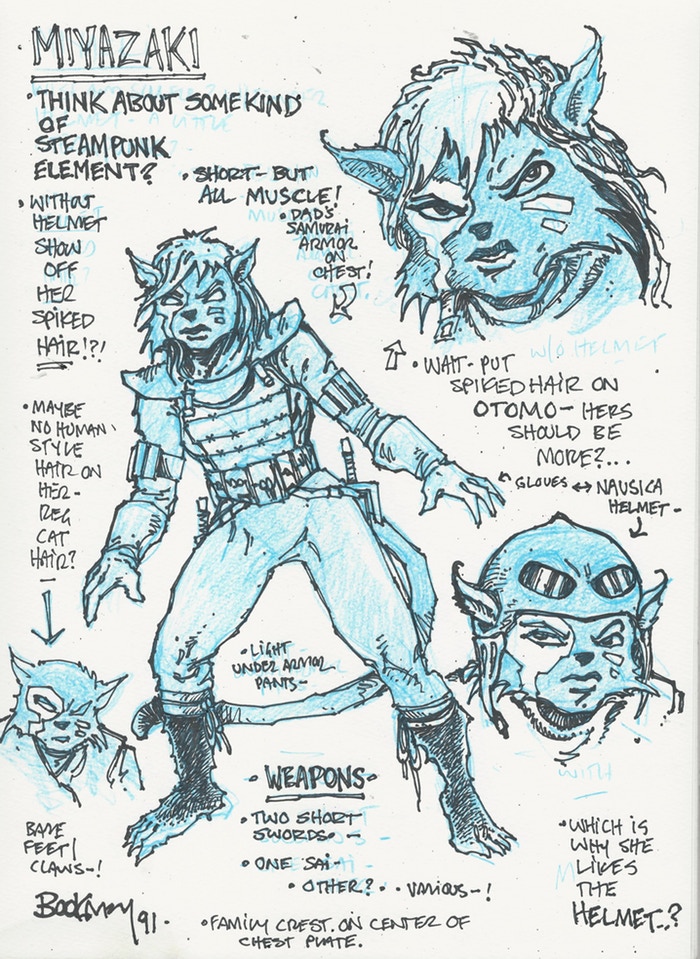 MIYAZAKI
• THINK ABOUT SOMEKIND
OF
STEAMPUNK
ELEMENT?
• WITHOUT
HELMET
SHOW
OFF
HER
SPIKED
HAIR!?!
• SHORT - BUT
ALL MUSCLE!
• DAD'S
SAMURAI
ARMOR
ON
CHEST!
W/O HELMET
• WAIT - PUT
SPIKED HAIR ON
OTOMO - HERS
SHOULD BE
MORE?...
GLOVES ↔ NAUSICA
HELMET -
• MAYBE
NO HUMAN
STYLE
HAIR ON
HER -
REG
CAT
HAIR?
• LIGHT
UNDER ARMOR
PANTS -
WITH
• WEAPONS •
• TWO SHORT
SWORDS - -
• ONE SAI -
• OTHER? - VARIOUS - !
BARE
FEET/
CLAWS - !
• WHICH IS
WHY SHE
LIKES
THE
HELMET..?
BOOKMAN 91.
• FAMILY CREST. ON CENTER OF
CHEST PLATE.